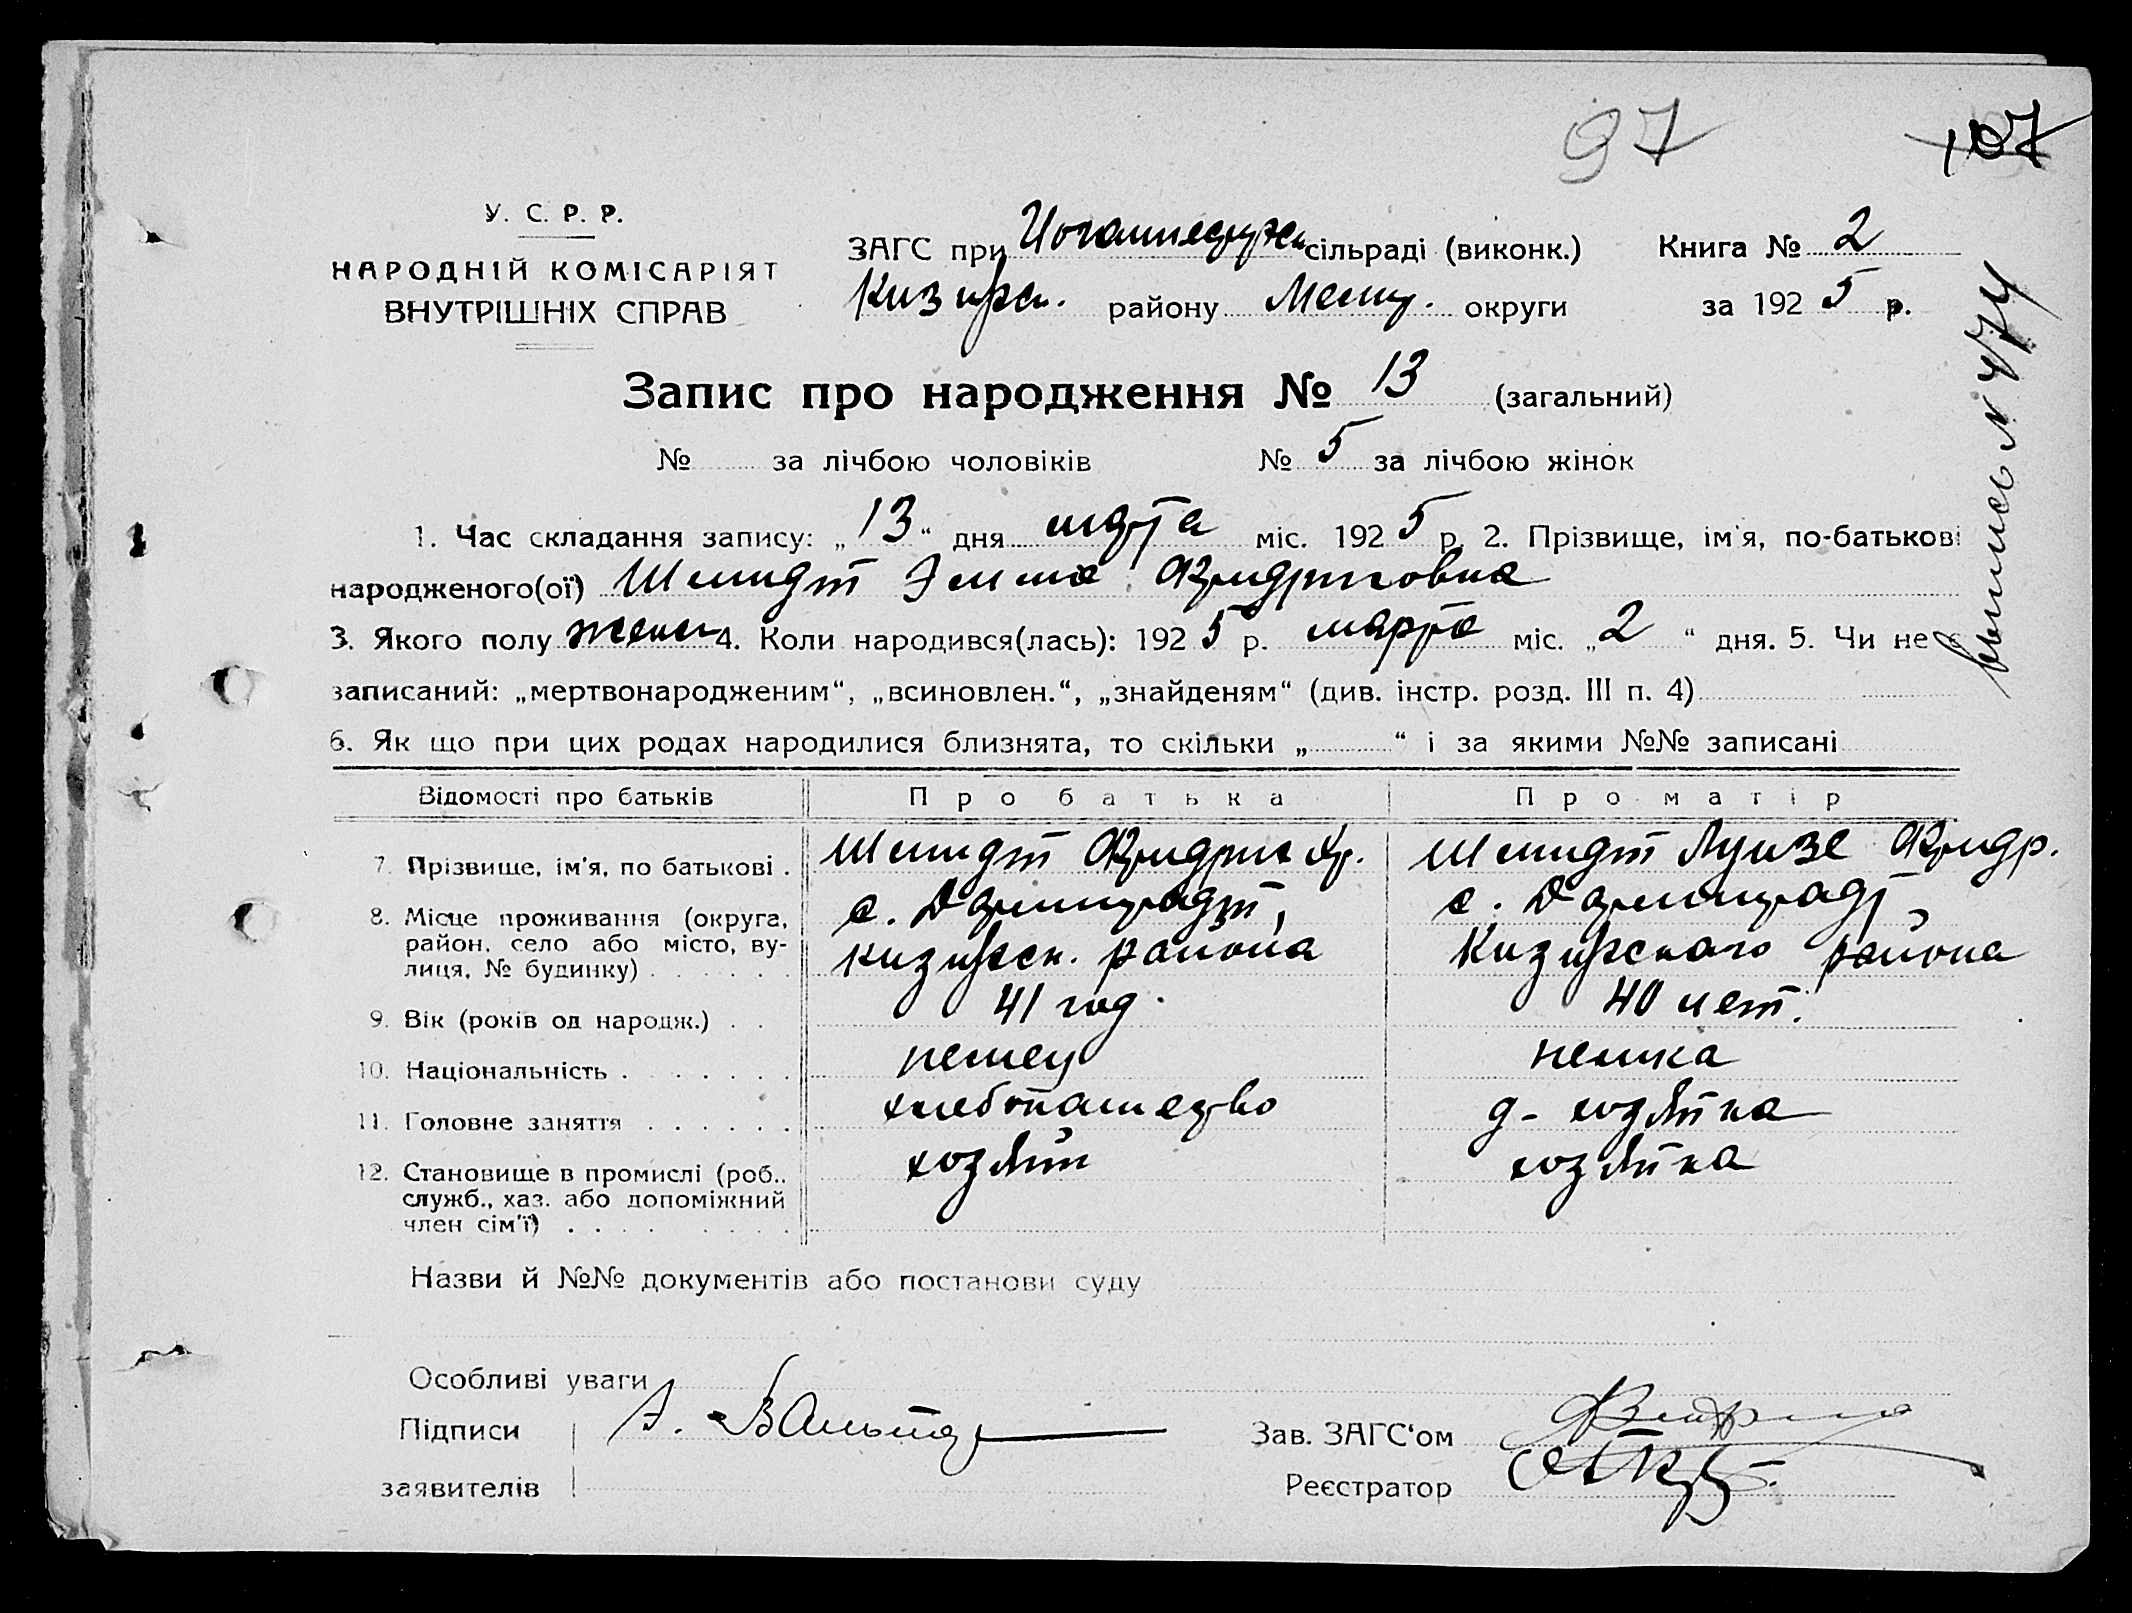 97 107
У. С. Р. Р.
НАРОДНІЙ КОМІСАРІЯТ
ВНУТРІШНІХ СПРАВ
ЗАГС при сільраді (виконк.) Книга № 2
району округи за 192 5 р.
Запис про народження № 13 (загальний)
№ за лічбою чоловіків № 5 за лічбою жінок
1. Час складання запису: „ 13 “ дня марта міс. 192 5 р. 2. Прізвище, ім'я, по-батькові
народженого(ої) Шмидт Эмма Фридриховна
3. Якого полу женск 4. Коли народився(лась): 192 5 р. марта міс. „ 2 “ дня. 5. Чи не
записаний: „мертвонародженим“, „всиновлен.“, „знайденям“ (див. інстр. розд. III п. 4)
6. Як що при цих родах народилися близнята, то скільки „ “ і за якими №№ записані
Відомості про батьків Про батька Про матір
7. Прізвище, ім'я, по батькові . Шмидт Фридрих Хр. Шмидт Луизе Фридр.
8. Місце проживання (округа, с. Дармштадт, с. Дармштадт,
район, село або місто, ву- района района
лиця, № будинку) . . . . . .
9. Вік (років од народж.) . . 41 год. 40 лет.
10. Національність . . . . . . . немец немка
11. Головне заняття . . . . . . хлебопашество д-хозяйка
12. Становище в промислі (роб., хозяин хозяйка
служб., хаз. або допоміжний
член сім'ї) . . . . . . . .
Назви й №№ документів або постанови суду
Особливі уваги
Підписи Зав. ЗАГС'ом
заявителів Реєстратор
выпись № 474